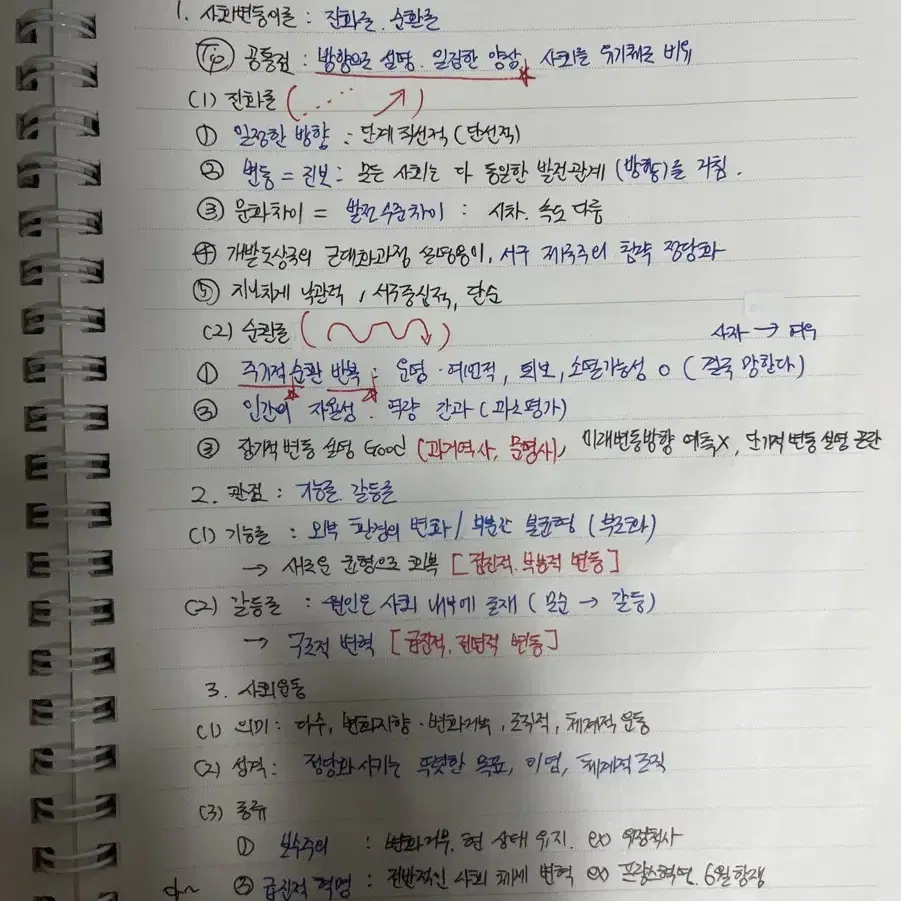 1. 사회변동이론 : 진화론. 순환론
Tip 공통점 : 방향으로 설명. 일정한 양상. 사회를 유기체로 비유
(1) 진화론 ( )
① 일정한 방향 : 단계 직선적 (단선적)
② 변동 = 진보 : 모든 사회는 다 동일한 발전관계 (방향)을 거침.
③ 문화차이 = 발전수준차이 : 시차. 속도 다름
④ 개발도상국의 근대화과정 설명용이, 서구 제국주의 침략 정당화
⑤ 지나치게 낙관적, 서구중심적, 단순
(2) 순환론 ( ) 사자 → 여우
① 주기적 순환 반복 : 운명·예언적, 퇴보, 소멸가능성 O (결국 망한다)
② 인간의 자율성. 역량 간과 (과소평가)
③ 장기적 변동 설명 Good (과거역사, 문명사), 미래변동방향 예측X, 단기적 변동 설명 곤란
2. 관점 : 기능론 갈등론
(1) 기능론 : 외부 환경의 변화 / 부분간 불균형 (부조화)
→ 새로운 균형으로 회복 [점진적, 부분적 변동]
(2) 갈등론 : 원인은 사회 내부에 존재 (모순 → 갈등)
→ 구조적 변혁 [급진적, 전면적 변동]
3. 사회운동
(1) 의미 : 다수, 변화지향·변화거부, 조직적, 체계적 운동
(2) 성격 : 정당화시키는 뚜렷한 목표, 이념, 체계적 조직
(3) 종류
① 보수주의 : 변화거부. 현 상태 유지. ex) 위정척사
② 급진적 혁명 : 전반적인 사회 체제 변혁 ex) 프랑스혁명. 6월항쟁